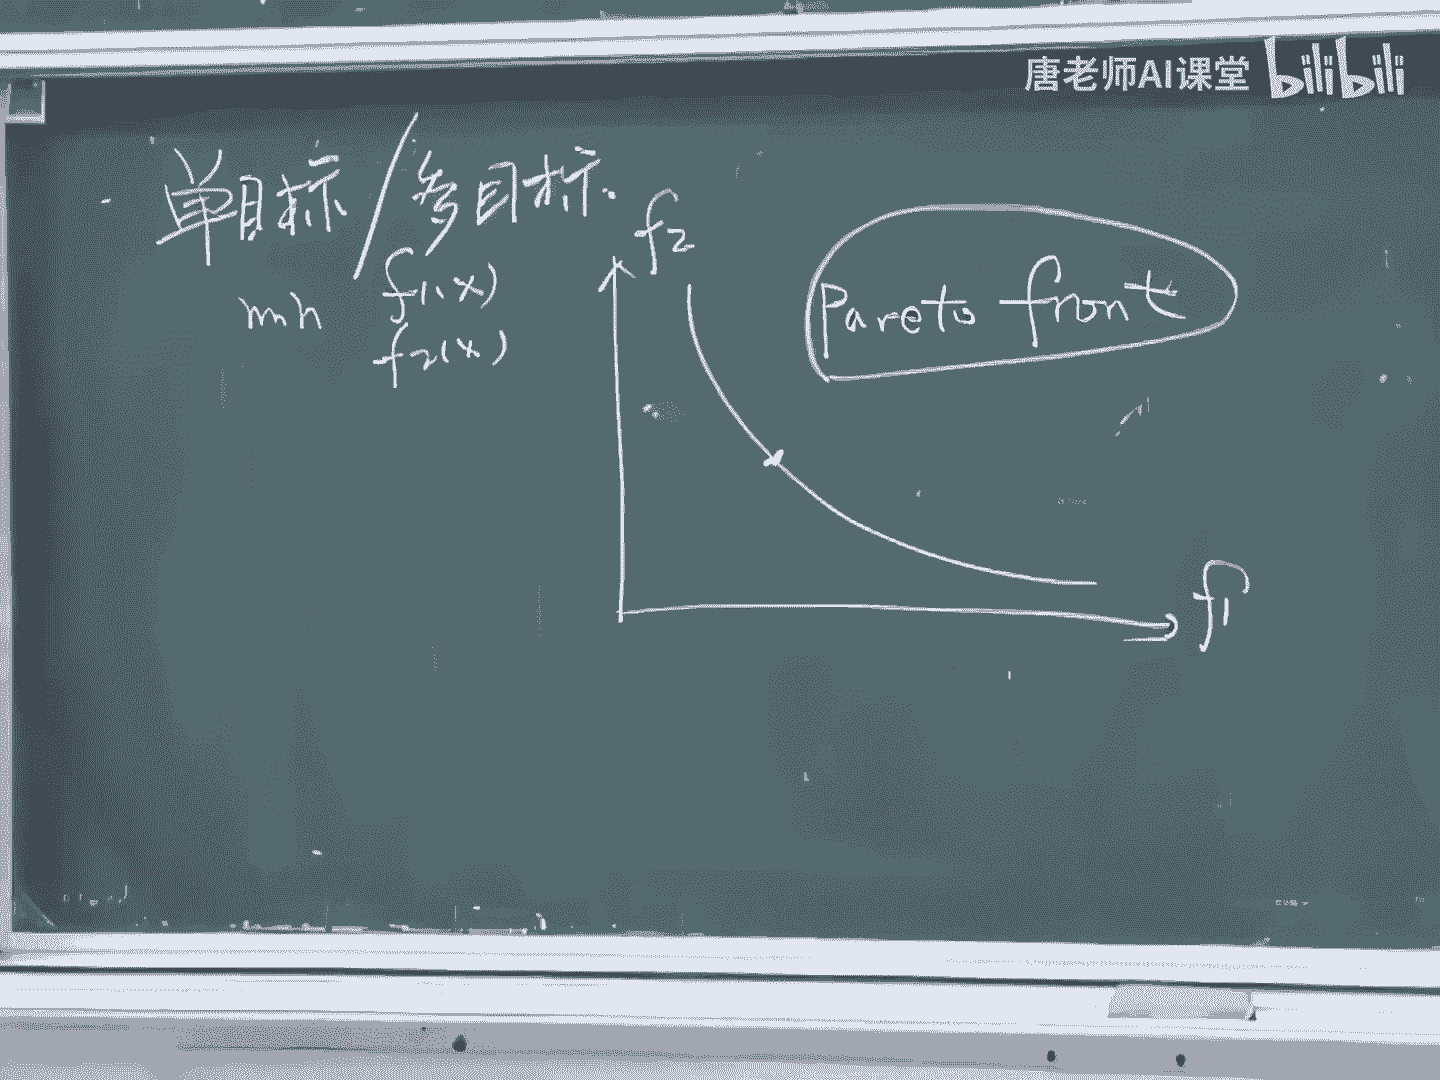 唐老师AI课堂 bilibili
单目标/多目标.
min f1(x)
f2(x)
f2
Pareto front
f1